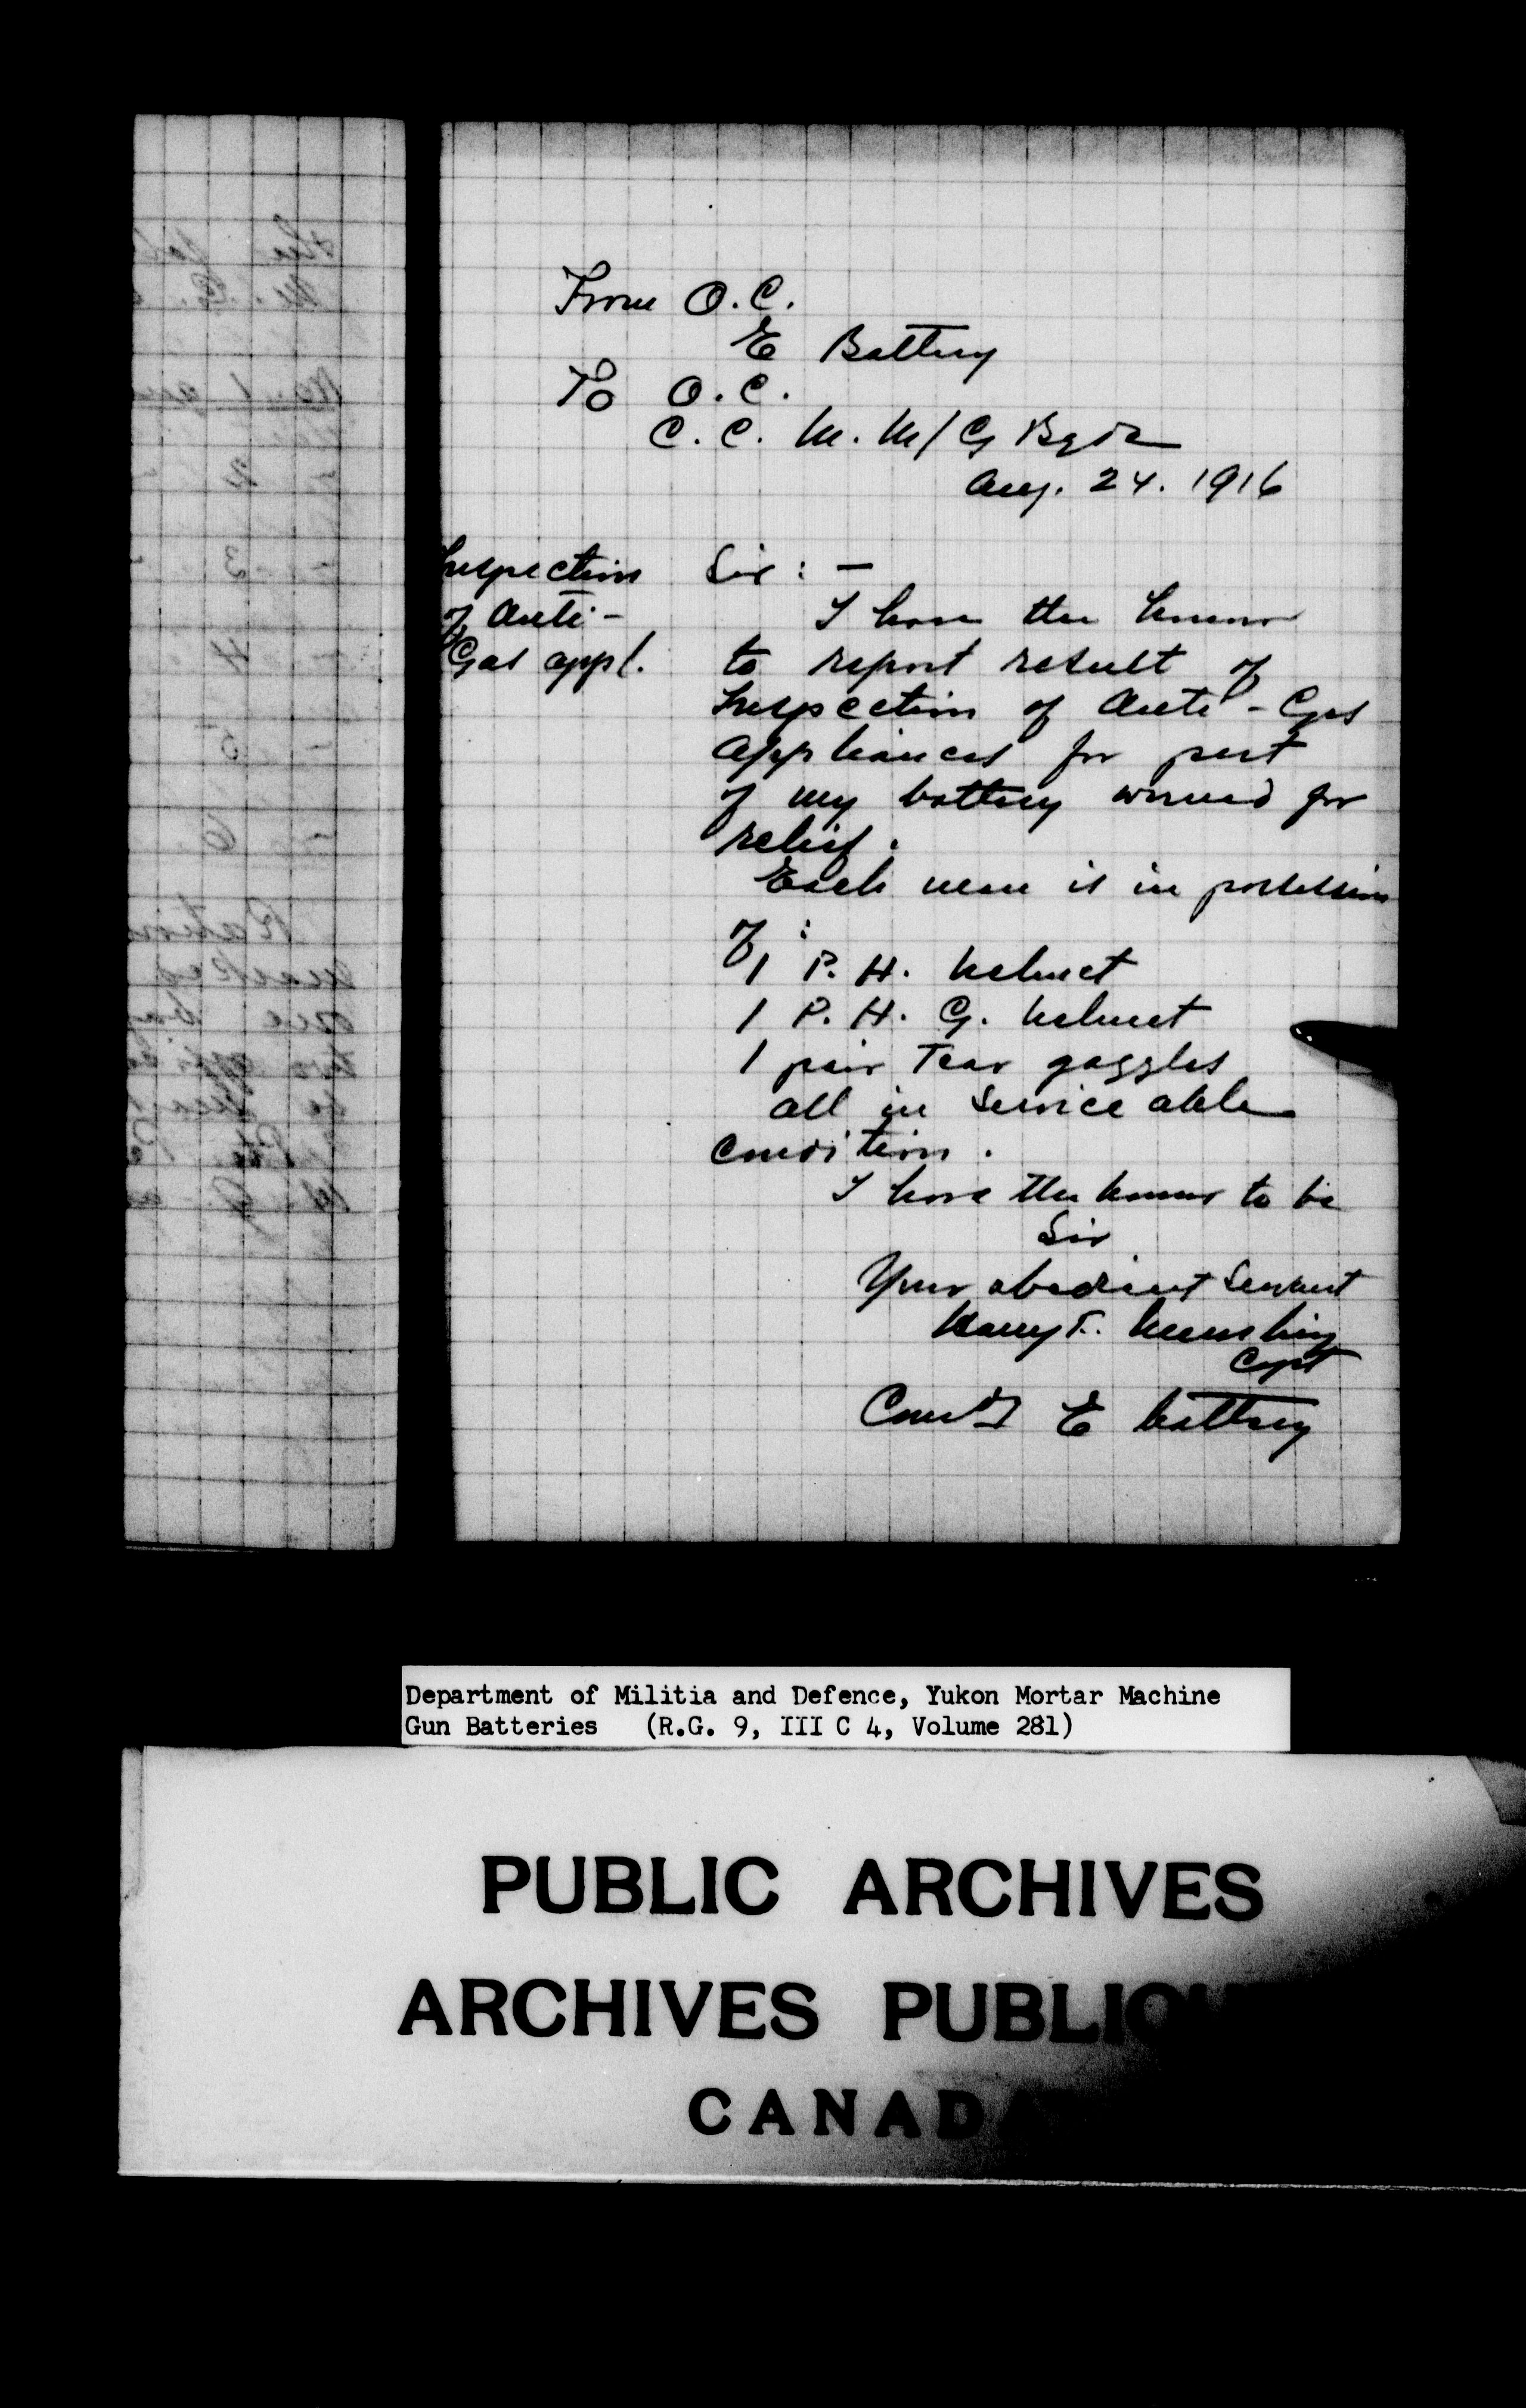 From O.C.
E Battery
To O.C.
C.C.M.M/G Bgde
Aug. 24. 1916
Inspection
of Anti-
Gas appl.
Sir:—
I have the honor
to report result of
Inspection of Anti-Gas
Appliances for part
of my battery warned for
relief.
Each man is in possession
of:
1 P.H. helmet
1 P.H.G. helmet
1 pair Tear goggles
all in serviceable
condition.
I have the honor to be
Sir
Your obedient Servant
Harry F. Meurling
Capt
Comdg E battery
Department of Militia and Defence, Yukon Mortar Machine
Gun Batteries (R.G. 9, III C 4, Volume 281)
PUBLIC ARCHIVES
ARCHIVES PUBLIQU
CANADA